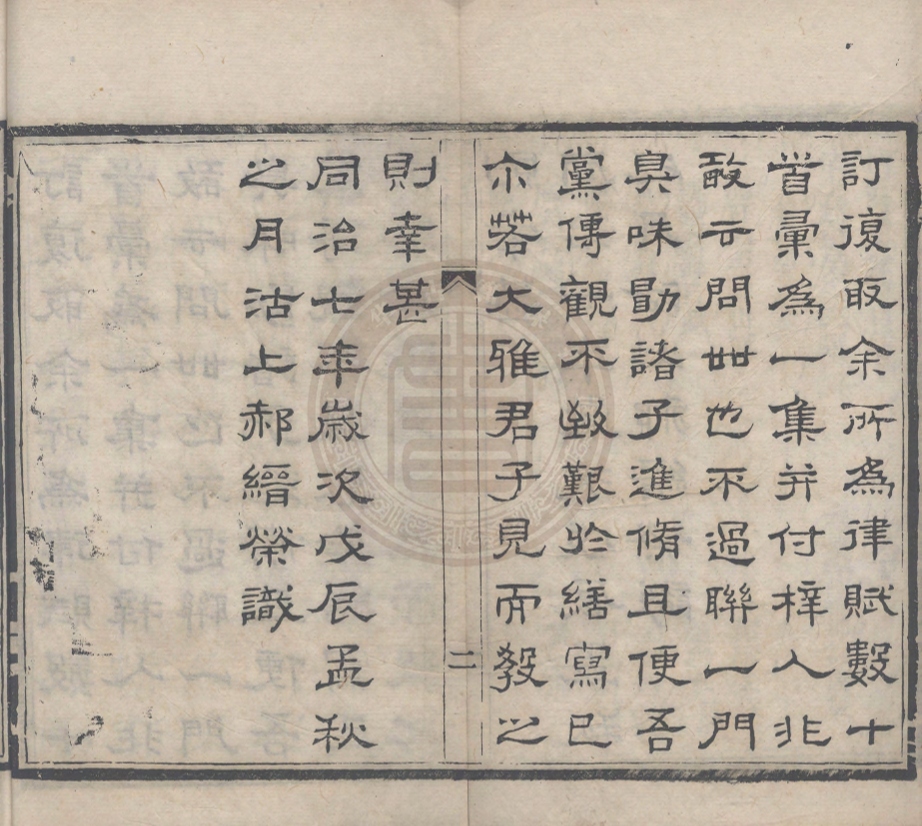 訂復取余所爲律賦數十
首彙爲一集并付梓人非
敢云問世也不過聯一門
臭味勖諸子進脩且便吾
黨傳觀不致艱於繕寫已
尒若大雅君子見而教之
二
則幸甚
同治七年歲次戊辰孟秋
之月沽上郝縉榮識